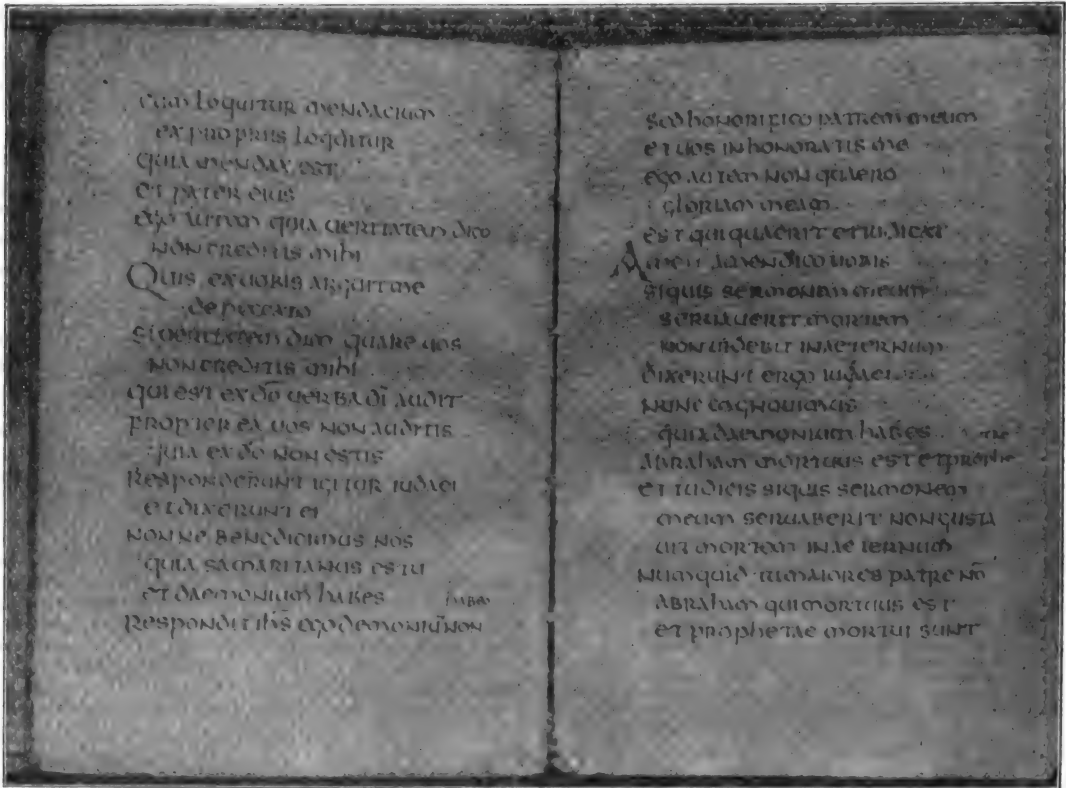 cum loquitur mendacium
ex propriis loquitur
quia mendax est
et pater eius
ego autem quia ueritatem dico
non creditis mihi
Quis ex uobis arguit me
de peccato
si ueritatem dico quare uos
non creditis mihi
qui est ex dō uerba dī audit
propter ea uos non auditis
quia ex dō non estis
Responderunt igitur iudaei
et dixerunt ei
nonne benedicimus nos
quia samaritanus es tu
et daemonium habes
habeo
Respondit ihs ego demoniū non
sed honorifico patrem meum
et uos inhonoratis me
ego autem non quaero
gloriam meam
est qui quaerit et iudicat
Amen amen dico uobis
siquis sermonem meum
seruauerit mortem
non uidebit in aeternum
dixerunt ergo iudaei
nunc cognouimus
quia daemonium habes
tae
abraham mortuus est et prophe
et tu dicis siquis sermonem
meum seruaberit non gusta
uit mortem in aeternum
numquid tu maior es patre nō
abraham qui mortuus est
et prophetae mortui sunt